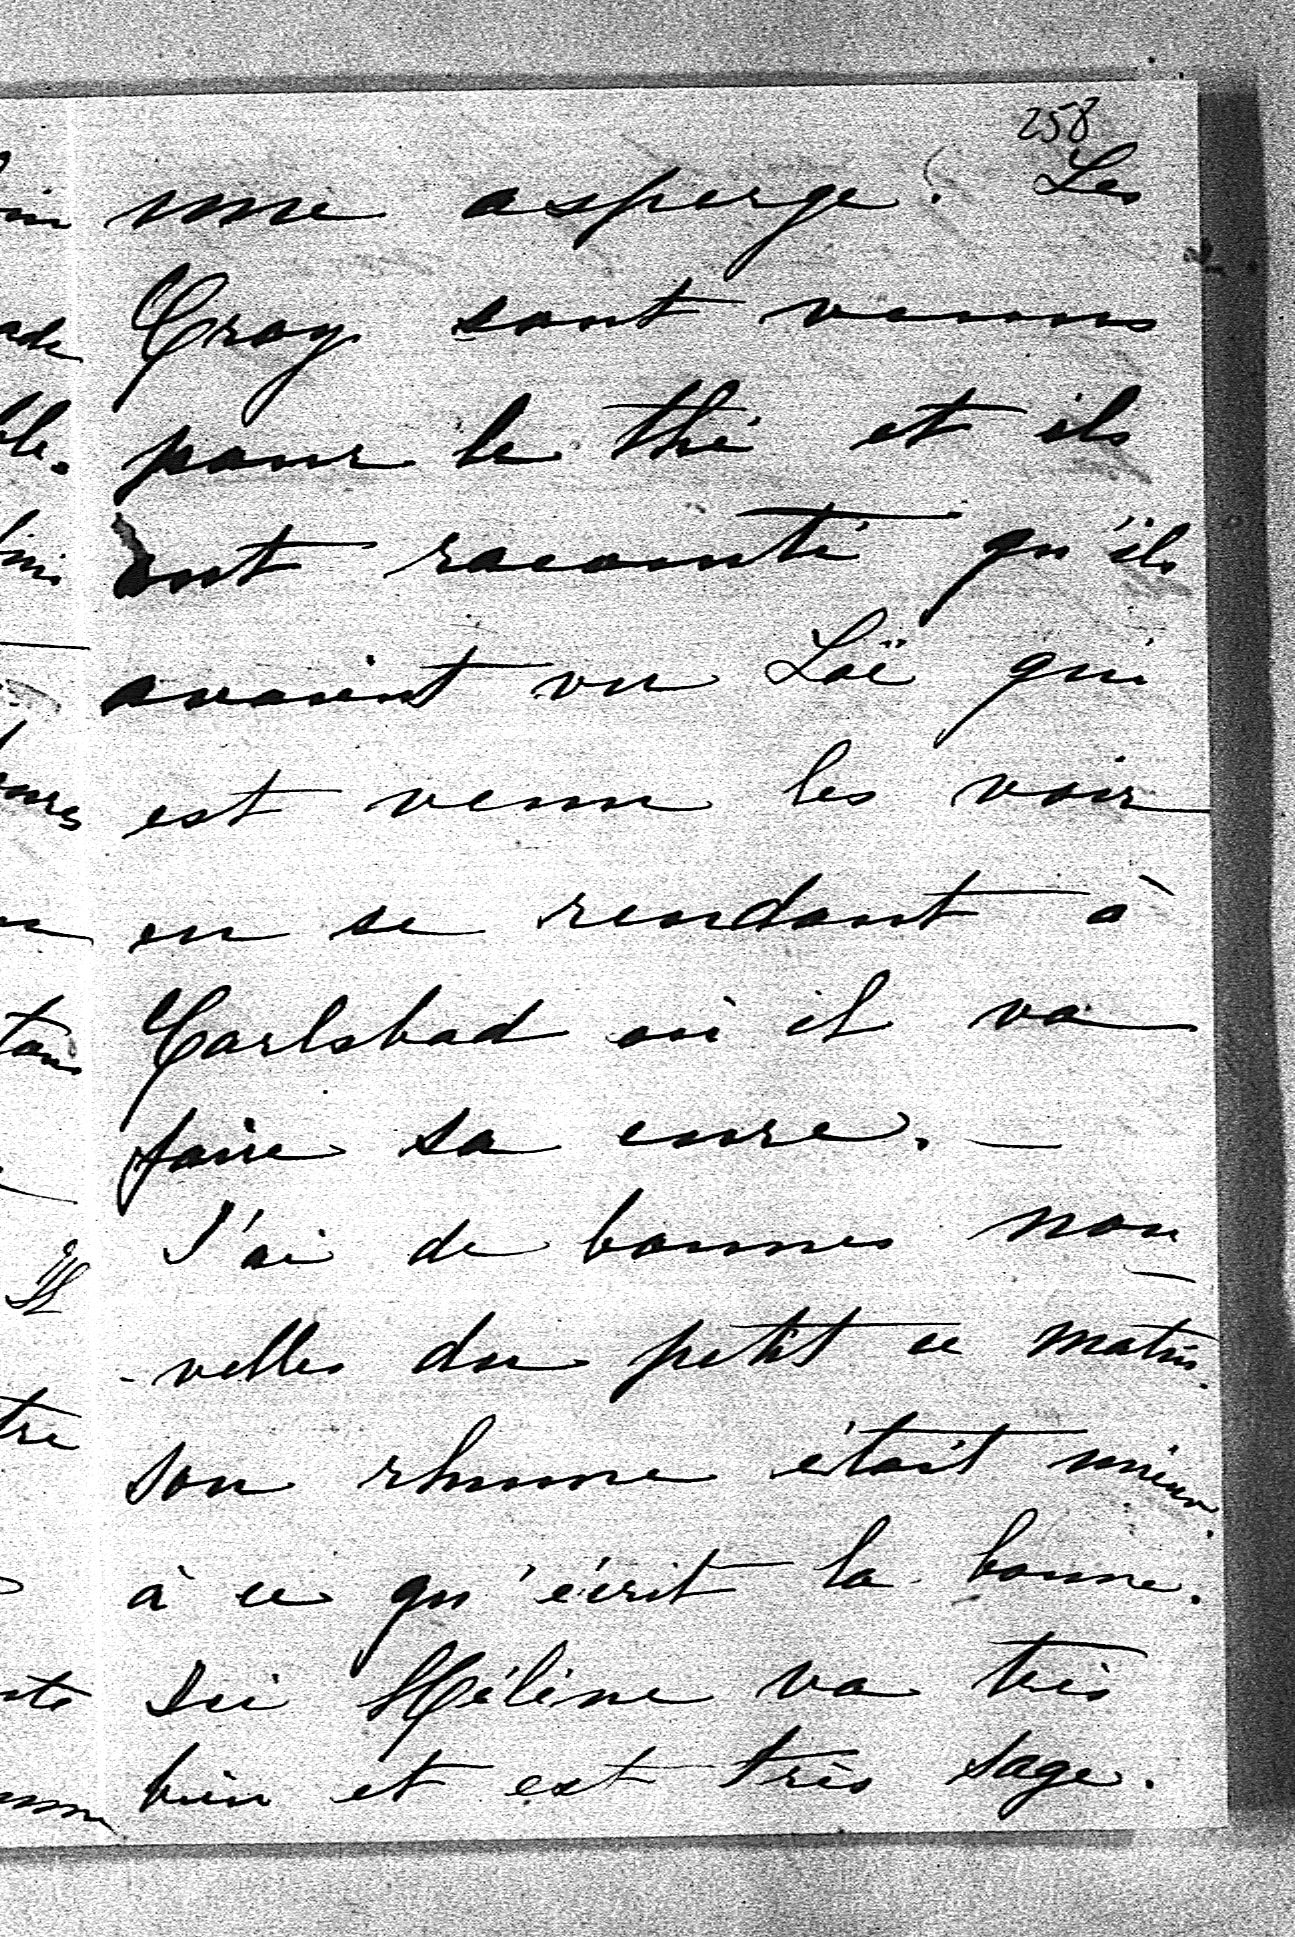 258
une asperge. Les
Croy sont venus
pour le thé et ils
ont raconté qu'ils
avaient vu Loë qui
est venu les voir
en se rendant à
Carlsbad où il va
faire sa cure. —
J'ai de bonnes nou
-velles du petit ce matin.
son rhume était mieux
à ce qu'écrit la bonne.
Ici Hélène va très
bien et est très sage.